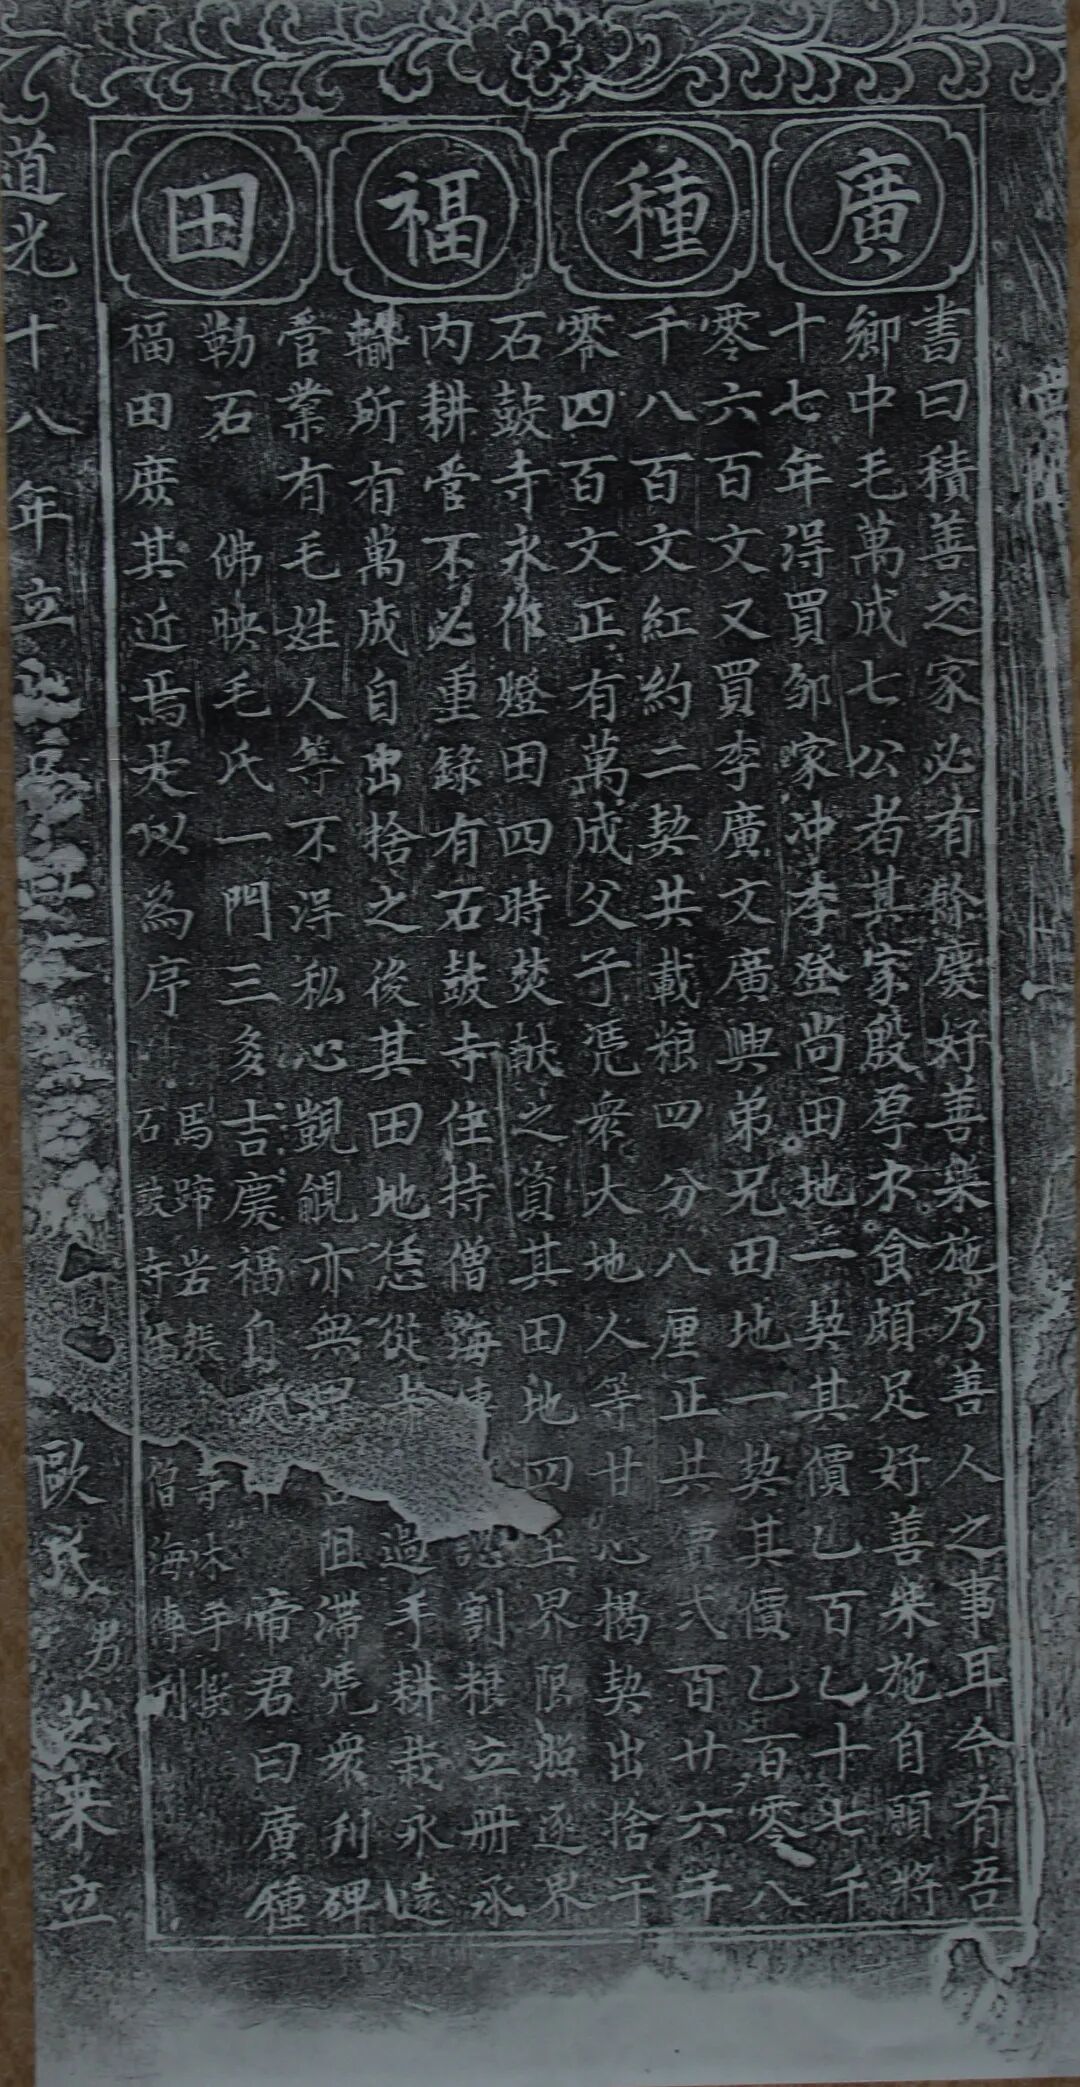 廣種福田
書曰積善之家必有餘慶好善樂施乃善人之事耳今有吾
鄉中毛萬成七公者其家殷厚衣食頗足好善樂施自願將
十七年得買邹家冲李登尚田地一契其價乙百乙十七千
零六百文又買李廣文廣興弟兄田地一契其價乙百零八
千八百文紅約二契共載粮四分八厘正共價弍百廿六千
零四百文正有萬成父子凭衆大地人等甘心揭契出捨于
石鼓寺永作燈田四時焚献之資其田地四至界限照逐界
内耕管不必重錄有石鼓寺住持僧海認割粮立冊永
輪所有萬成自出捨之後其田地恁從過手耕栽永遠
管業有毛姓人等不得私心覬覦亦無阻滞凭衆刋碑
勒石 佛映毛氏一門三多吉慶福自帝君曰廣種
福田庶其近焉是以為序
馬蹄岩張手撰
石鼓寺僧海傳刋
道光十八年立
歐氏男芝荣立